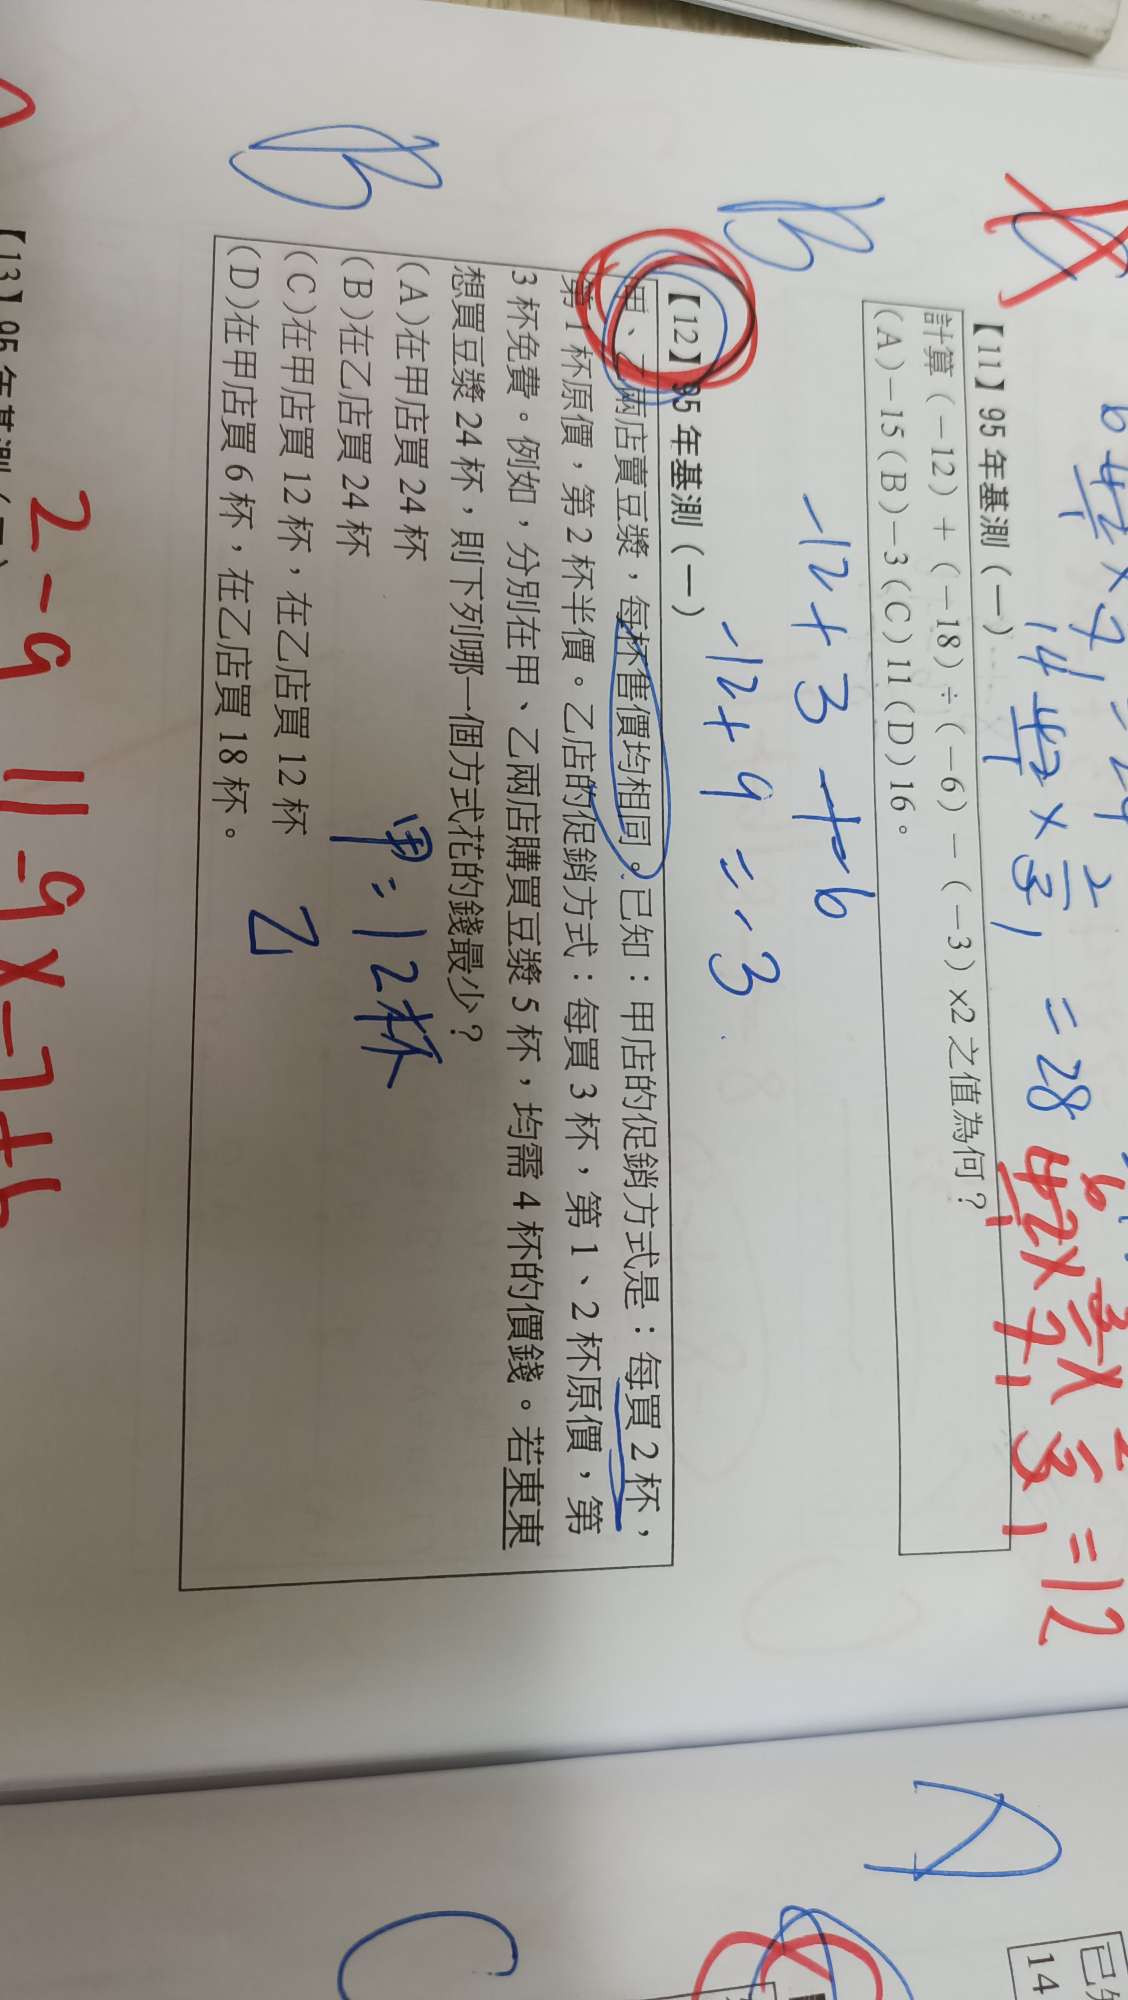 6 4/2 × 7
14 42/1 × 2/3 = 28
42/1 × 3/7 × 2/3 = 12
【11】95 年基測（一）
計算（－12）＋（－18）÷（－6）－（－3）×2 之值為何？
（A）－15（B）－3（C）11（D）16。
B
-12 + 3 + 6
-12 + 9 = -3
【12】95 年基測（一）
甲、乙兩店賣豆漿，每杯售價均相同。已知：甲店的促銷方式是：每買 2 杯，
第 1 杯原價，第 2 杯半價。乙店的促銷方式：每買 3 杯，第 1、2 杯原價，第
3 杯免費。例如，分別在甲、乙兩店購買豆漿 5 杯，均需 4 杯的價錢。若東東
想買豆漿 24 杯，則下列哪一個方式花的錢最少？
（A）在甲店買 24 杯
（B）在乙店買 24 杯
（C）在甲店買 12 杯，在乙店買 12 杯
（D）在甲店買 6 杯，在乙店買 18 杯。
B
甲=12杯
乙
【13】95 年基測（二）
2-9 11-9×-7+6
A
C
已知
14